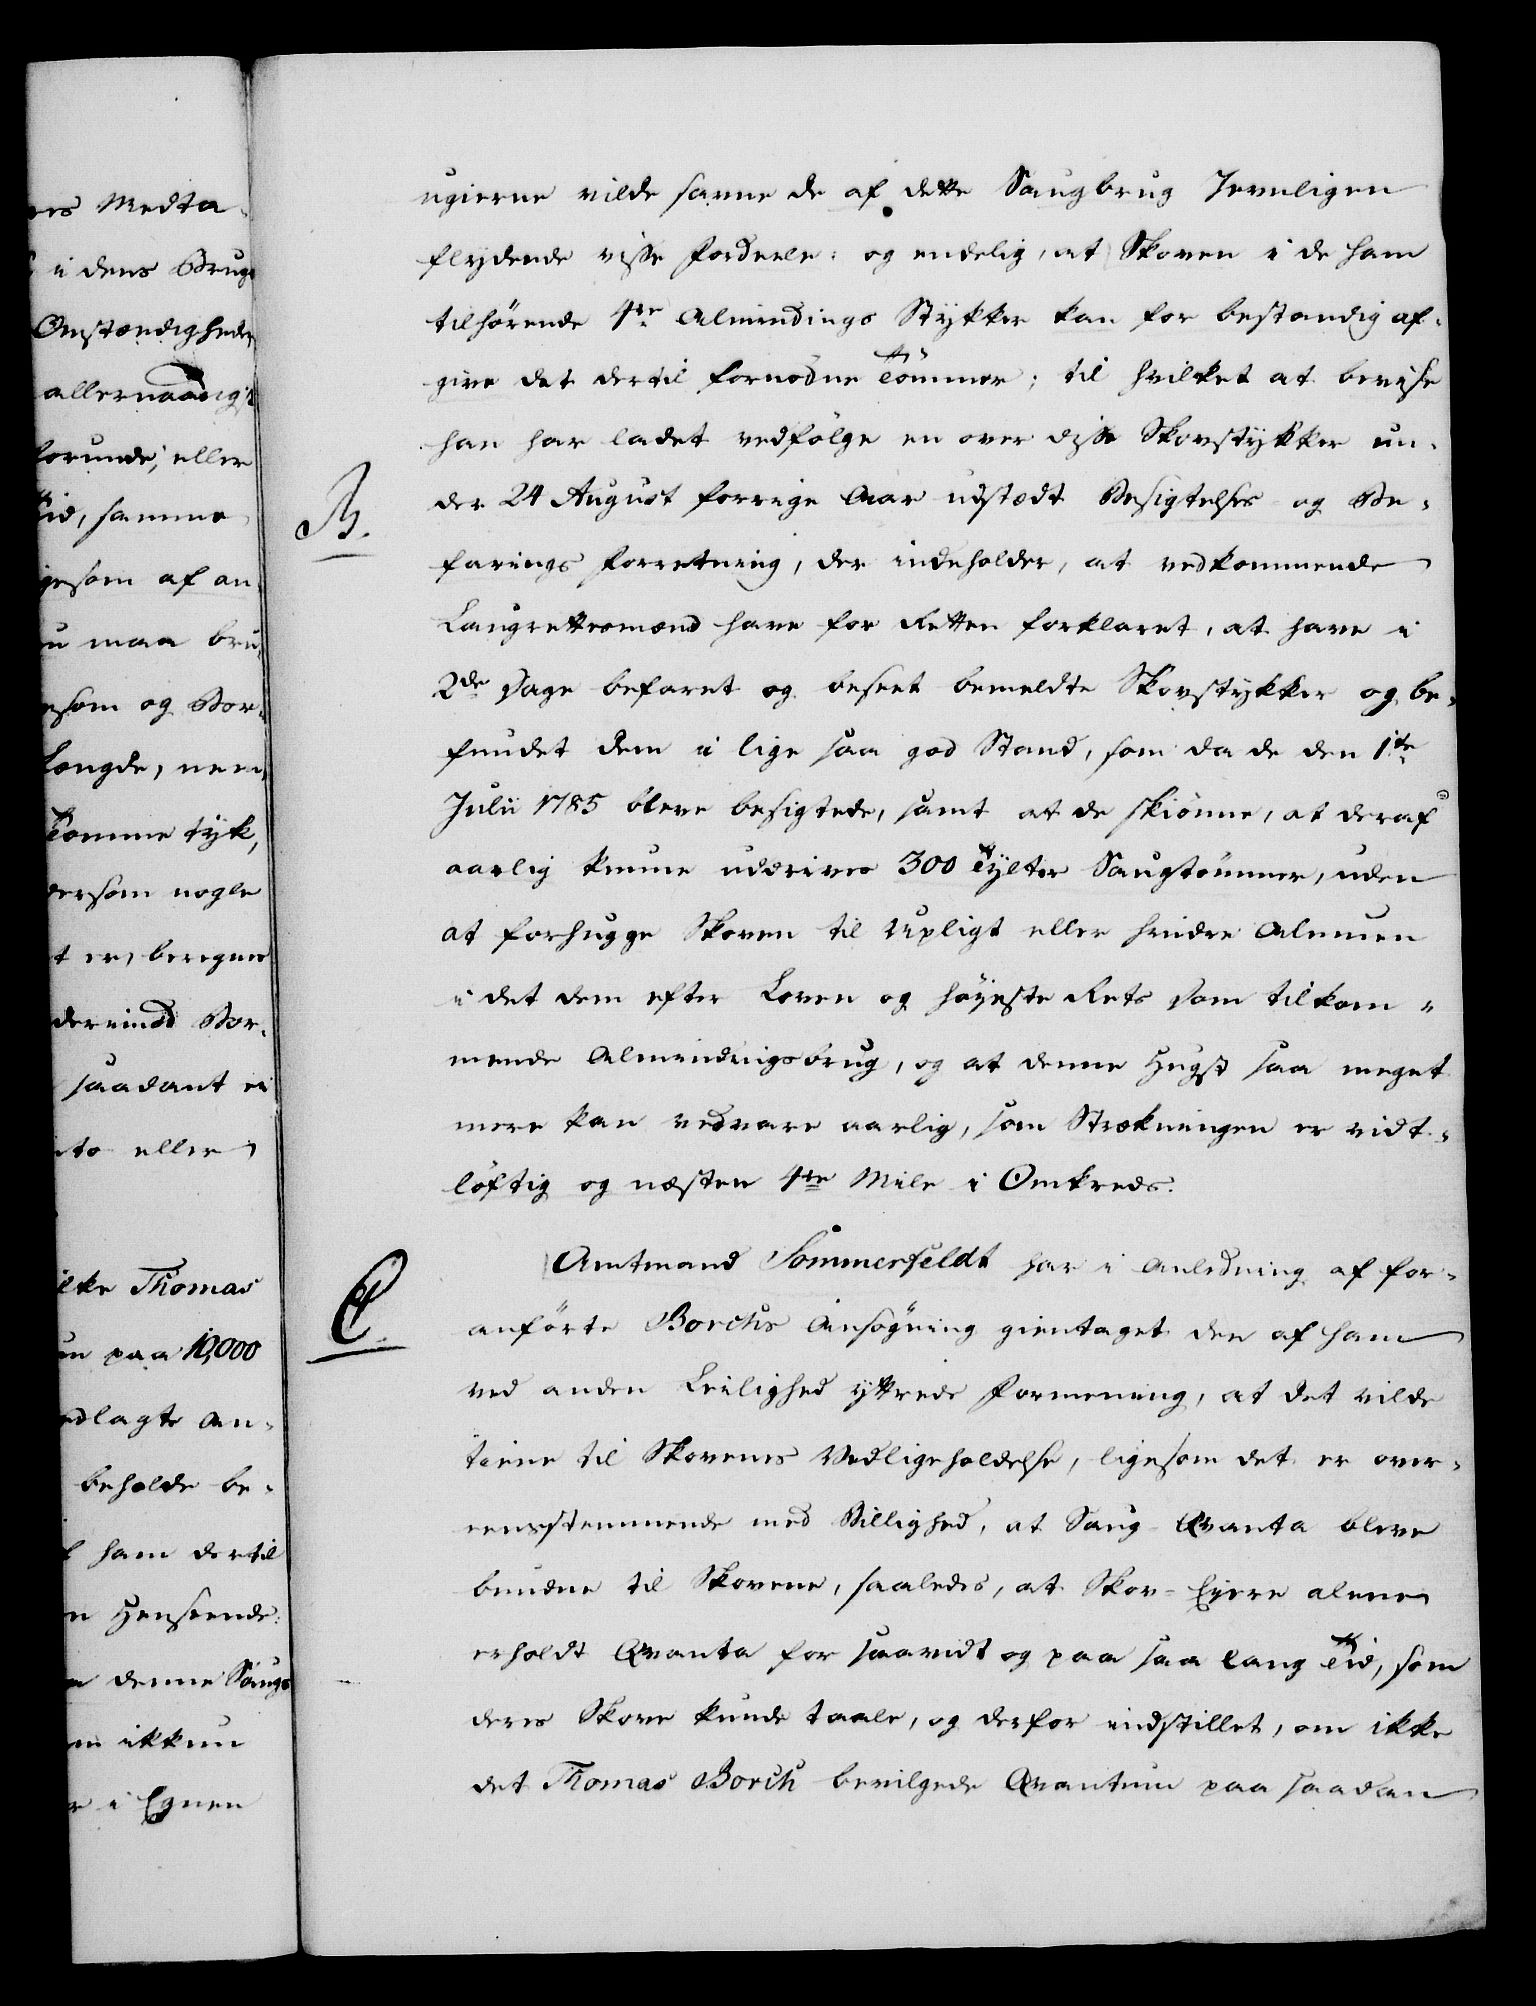 es Medta-
i dens Brug
Omstændigheder
allernaadigst
forunde, eller
Tid, samme
gesom af an-
maa bru-
som og Bor-
Længde, nem-
Tomme tyk,
dersom nogle
t er, beregnes
derimod Bor-
saadant ei
eller
ilke Thomas
paa 10,000
edlagte An-
beholde be-
ham dertil
n Henseende:
denne Saugs
ikkun
r i Egnen
ugierne vilde savne de af dette Saugbrug Jevnligen
flydende visse Fordeele: og endelig, at Skoven i de ham
tilhørende 4re Almindings Stykker kan for bestandig af-
give det dertil fornødne Tømmer; til hvilket at bevise
han har ladet vedfølge en over disse Skovstykker un-
B.
der 24 August forrige Aar udstædt Besigtelses- og Be-
farings Forretning, der indeholder, at vedkommende
Laugrettesmænd have for Retten forklaret, at have i
2de Dage befaret og beseet bemeldte Skovstykker og be-
fundet dem i lige saa god Stand, som da de den 1te
Julii 1785 bleve besigtede, samt at de skiønne, at deraf
aarlig kunne uddrives 300 Tylter Saugtømmer, uden
at forhugge Skoven til Upligt eller hindre Almuen
i det dem efter Loven og høyeste Rets Dom tilkom-
mende Almindingsbrug, og at denne Hugst saa meget
mere kan vedvare aarlig, som Strækningen er vidt-
løftig og næsten 4re Mile i Omkreds.
C.
Amtmand Sommerfeldt har i Anledning af for-
anførte Borchs Ansøgning gientaget den af ham
ved anden Leilighed yttrede Formening, at det vilde
tiene til Skovenes Vedligeholdelse, ligesom det er over-
eensstemmende med Billighed, at Saug-Qvanta bleve
bundne til Skovene, saaledes, at Skov-Eyere alene
erholdt Qvanta for saavidt og paa saa lang Tid, som
deres Skove kunde taale, og derfor indstillet, om ikke
det Thomas Borch bevilgede Qvantum paa saadan